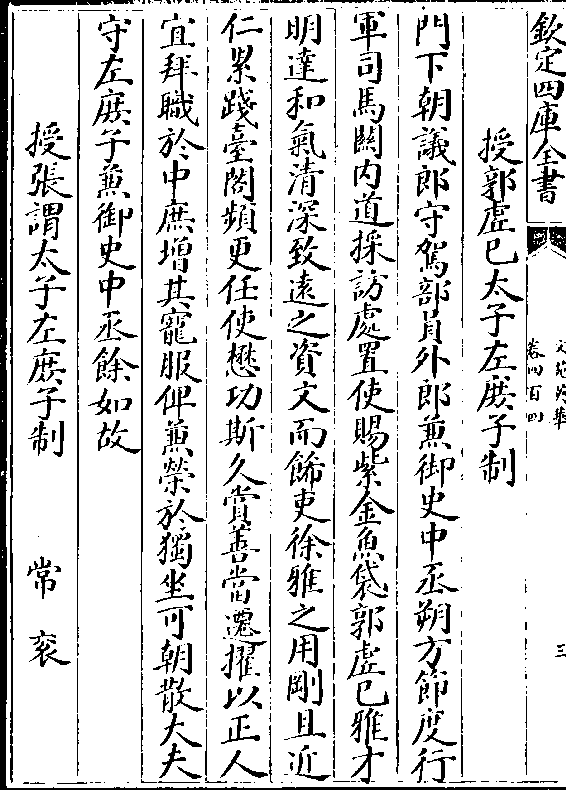 欽定四庫全書
文苑英華
卷四百四
三
授郭虚已太子左庶子制
門下朝議郎守駕部員外郎兼御史中丞朔方節度行
軍司馬關内道採訪處置使賜紫金魚袋郭虚已雅才
明達和氣清深致逺之資文而飾吏徐雅之用剛且近
仁累踐臺閣頻更任使懋功斯久賞善當遷擢以正人
宜拜職於中庶增其寵服俾兼榮於獨坐可朝散大夫
守左庶子兼御史中丞餘如故
授張謂太子左庶子制 常衮